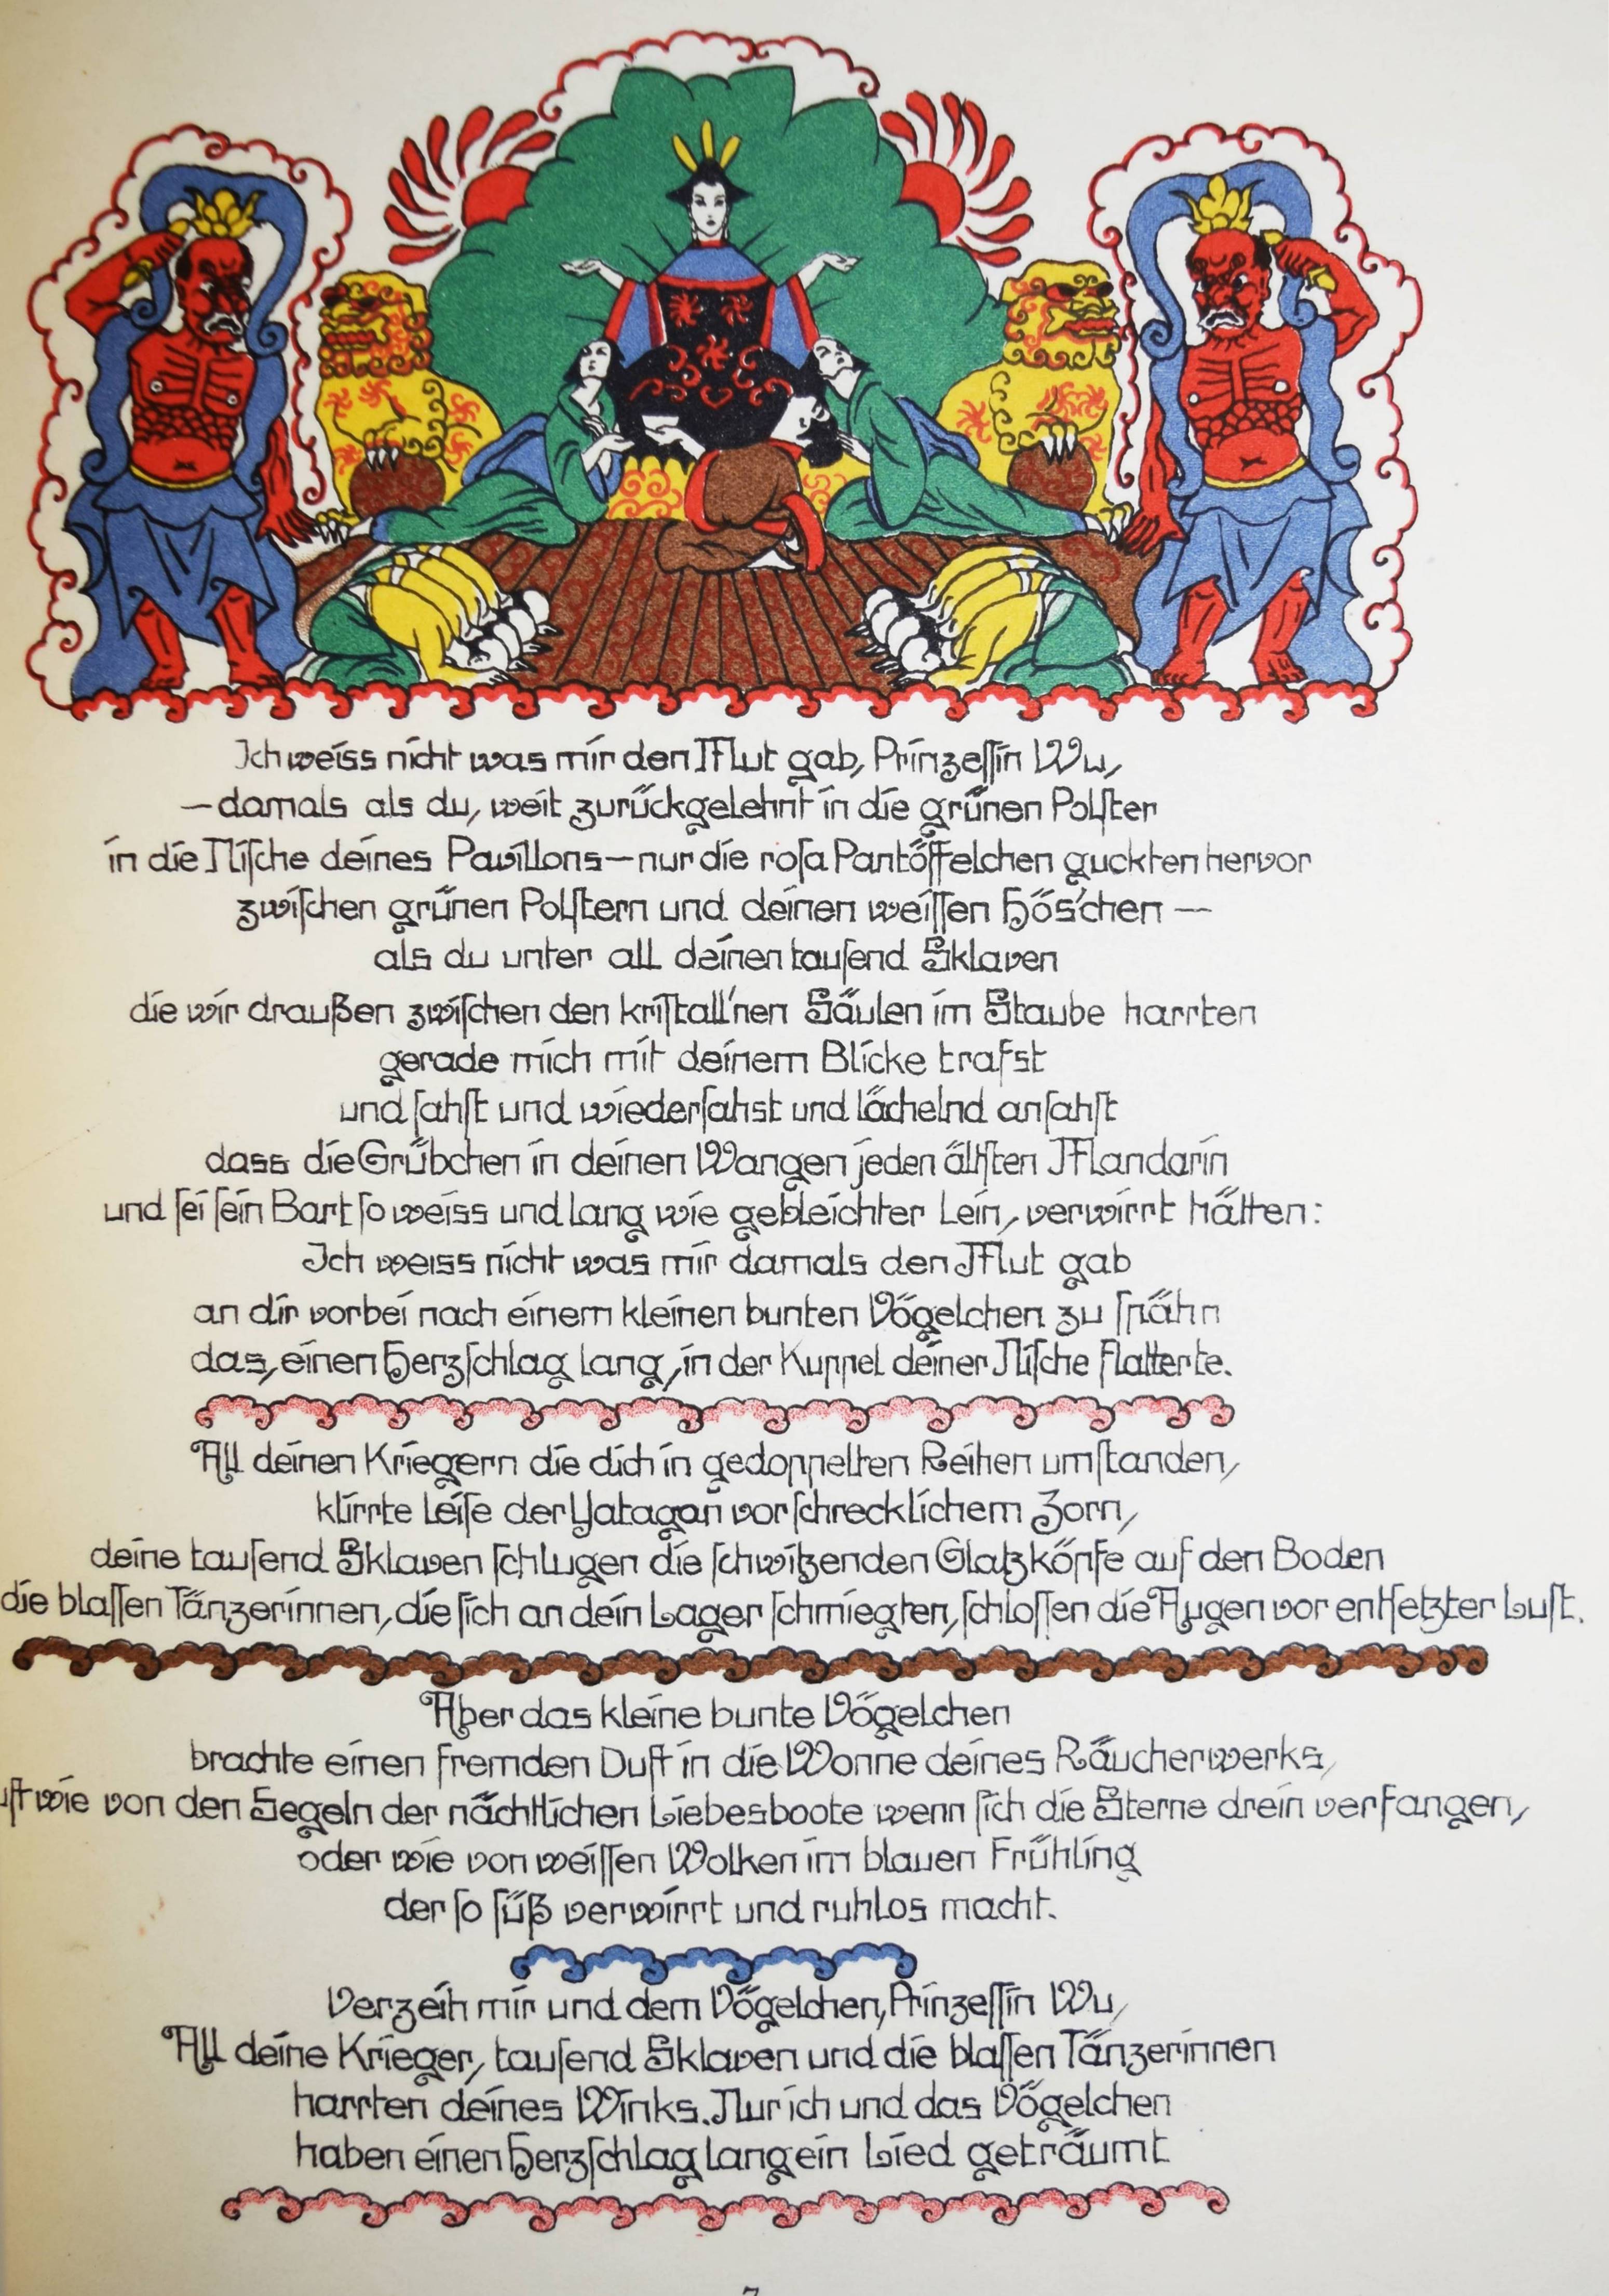 Ich weiss nicht was mir den Mut gab, Prinzeſſin Wu,
—damals als du, weit zurückgelehnt in die grünen Polſter
in die Niſche deines Pavillons—nur die roſa Pantöffelchen guckten hervor
zwiſchen grünen Polſtern und deinen weiſſen Hös'chen —
als du unter all deinen tauſend Sklaven
die wir draußen zwiſchen den kriſtall'nen Säulen im Staube harrten
gerade mich mit deinem Blicke trafst
und ſahſt und wiederſahst und lächelnd anſahſt
dass die Grübchen in deinen Wangen jeden ältſten Mandarin
und ſei ſein Bart ſo weiss und lang wie gebleichter Lein, verwirrt hätten:
Ich weiss nicht was mir damals den Mut gab
an dir vorbei nach einem kleinen bunten Vögelchen zu ſpähn
das, einen Herzſchlag lang, in der Kuppel deiner Niſche flatterte.
All deinen Kriegern die dich in gedoppelten Reihen umſtanden,
klirrte leiſe der Yatagan vor ſchrecklichem Zorn,
deine tauſend Sklaven ſchlugen die ſchwitzenden Glatzköpfe auf den Boden
die blaſſen Tänzerinnen, die ſich an dein Lager ſchmiegten, ſchloſſen die Augen vor entſetzter Luſt.
Aber das kleine bunte Vögelchen
brachte einen fremden Duft in die Wonne deines Räucherwerks,
wie von den Segeln der nächtlichen Liebesboote wenn ſich die Sterne drein verfangen,
oder wie von weiſſen Wolken im blauen Frühling
der ſo ſüß verwirrt und ruhlos macht.
Verzeih mir und dem Vögelchen, Prinzeſſin Wu,
All deine Krieger, tauſend Sklaven und die blaſſen Tänzerinnen
harrten deines Winks. Nur ich und das Vögelchen
haben einen Herzſchlag lang ein Lied geträumt